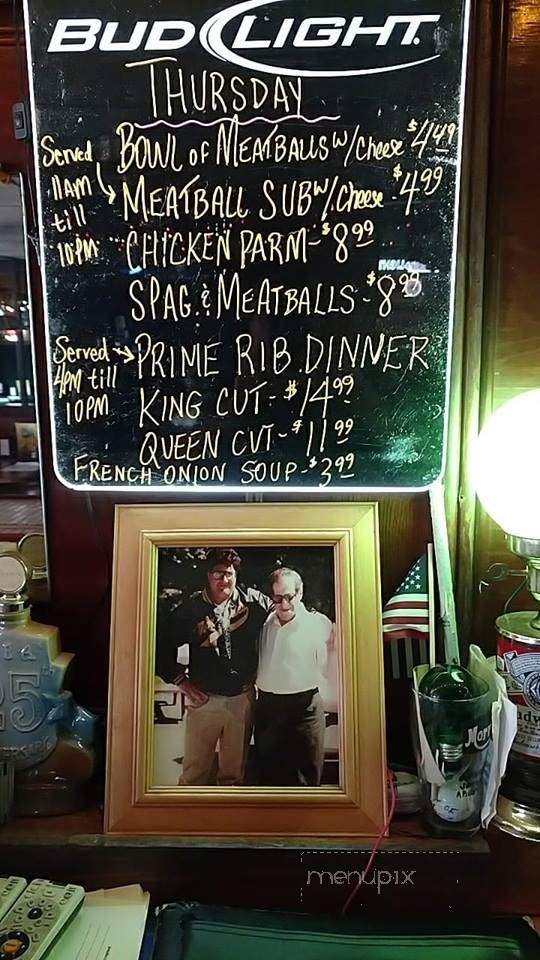 BUD LIGHT.
THURSDAY
Served 11AM till 10PM
BOWL OF MEATBALLS W/ Cheese $4.49
MEATBALL SUB W/ Cheese - $4.99
CHICKEN PARM - $8.99
SPAG. & MEATBALLS - $8.99
Served 4PM till 10PM
PRIME RIB DINNER
KING CUT - $14.99
QUEEN CUT - $11.99
FRENCH ONION SOUP - $3.99
25
menupix